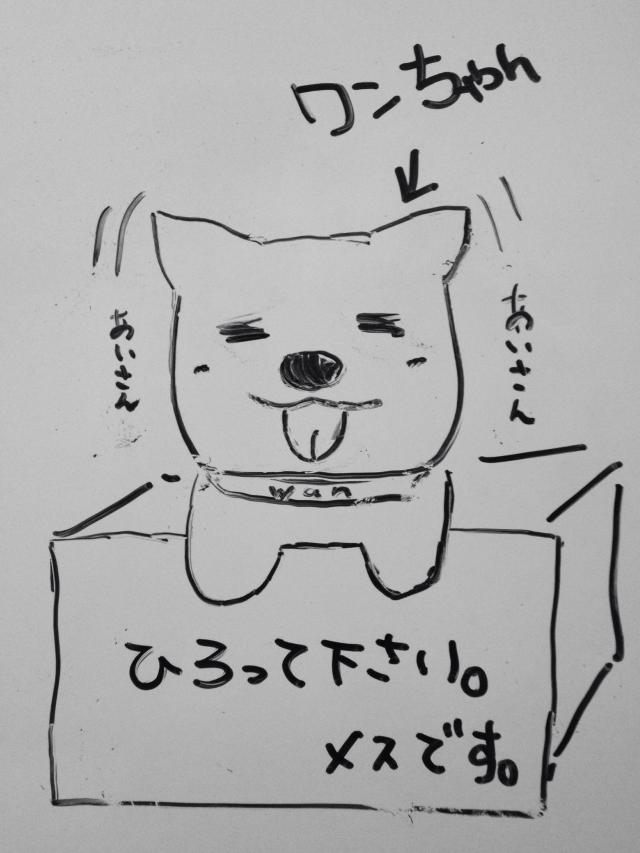 ワンちゃん
あいさん
あいさん
wan
ひろって下さい。
メスです。